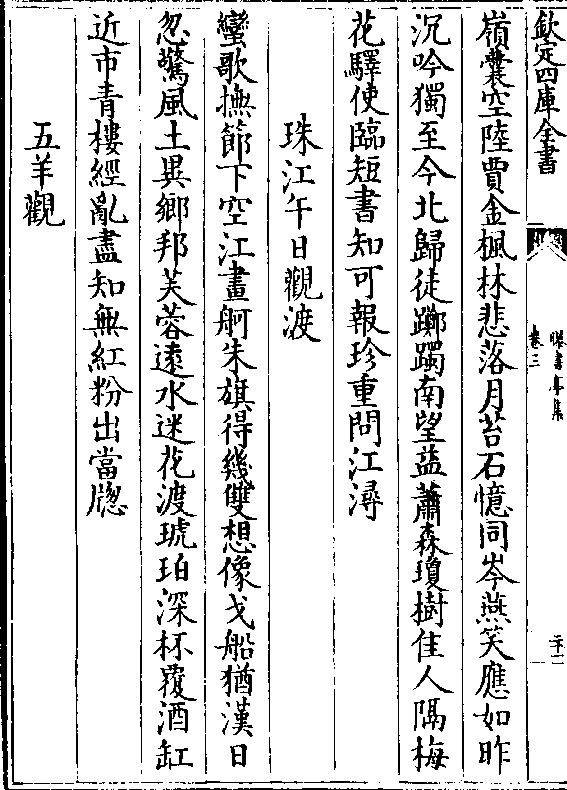 欽定四庫全書
曝書亭集
卷三
二十二
嶺囊空陸賈金楓林悲落月苔石憶同岑燕笑應如昨
沉吟獨至今北歸徒躑躅南望益蕭森瓊樹佳人隔梅
花驛使臨短書知可報珍重問江潯
珠江午日觀渡
蠻歌撫節下空江畫舸朱旗得幾雙想像戈船猶漢日
忽驚風土異鄉邦芙蓉逺水迷花渡琥珀深杯覆酒缸
近市青樓經亂盡知無紅粉出當牕
五羊觀